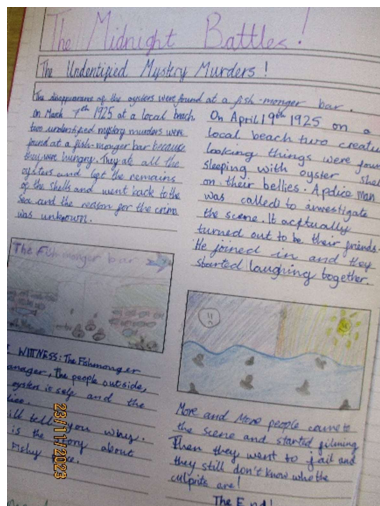 The Midnight Battles!
The Undentified Mystery Murders!
The disapperance of the oysters were found at a fish-monger bar.
on March 7th 1925 at a local beach
two undentified mystery murders were
found at a fish-monger bar because
they were hungry. They ate all the
oysters and left the remains
of the shells and went back to the
sea and the reason for the crime
was unknown.
The Fishmonger bar
WITTNESS: The Fishmonger
manager, the people outside,
oyster is self and the
ill tell you why.
is the story about
On April 19th 1925 on a
local beach two creatu
looking things were foun
sleeping with oyster she
on their bellies. A police man
was called to investigate
the scene. It acftually
turned out to be their friends
He joined in and they
started laughing together.
More and More people came to
the scene and started filming
Then they went to jail and
they still don't know who the
culprits are!
The End!
23/11/2023